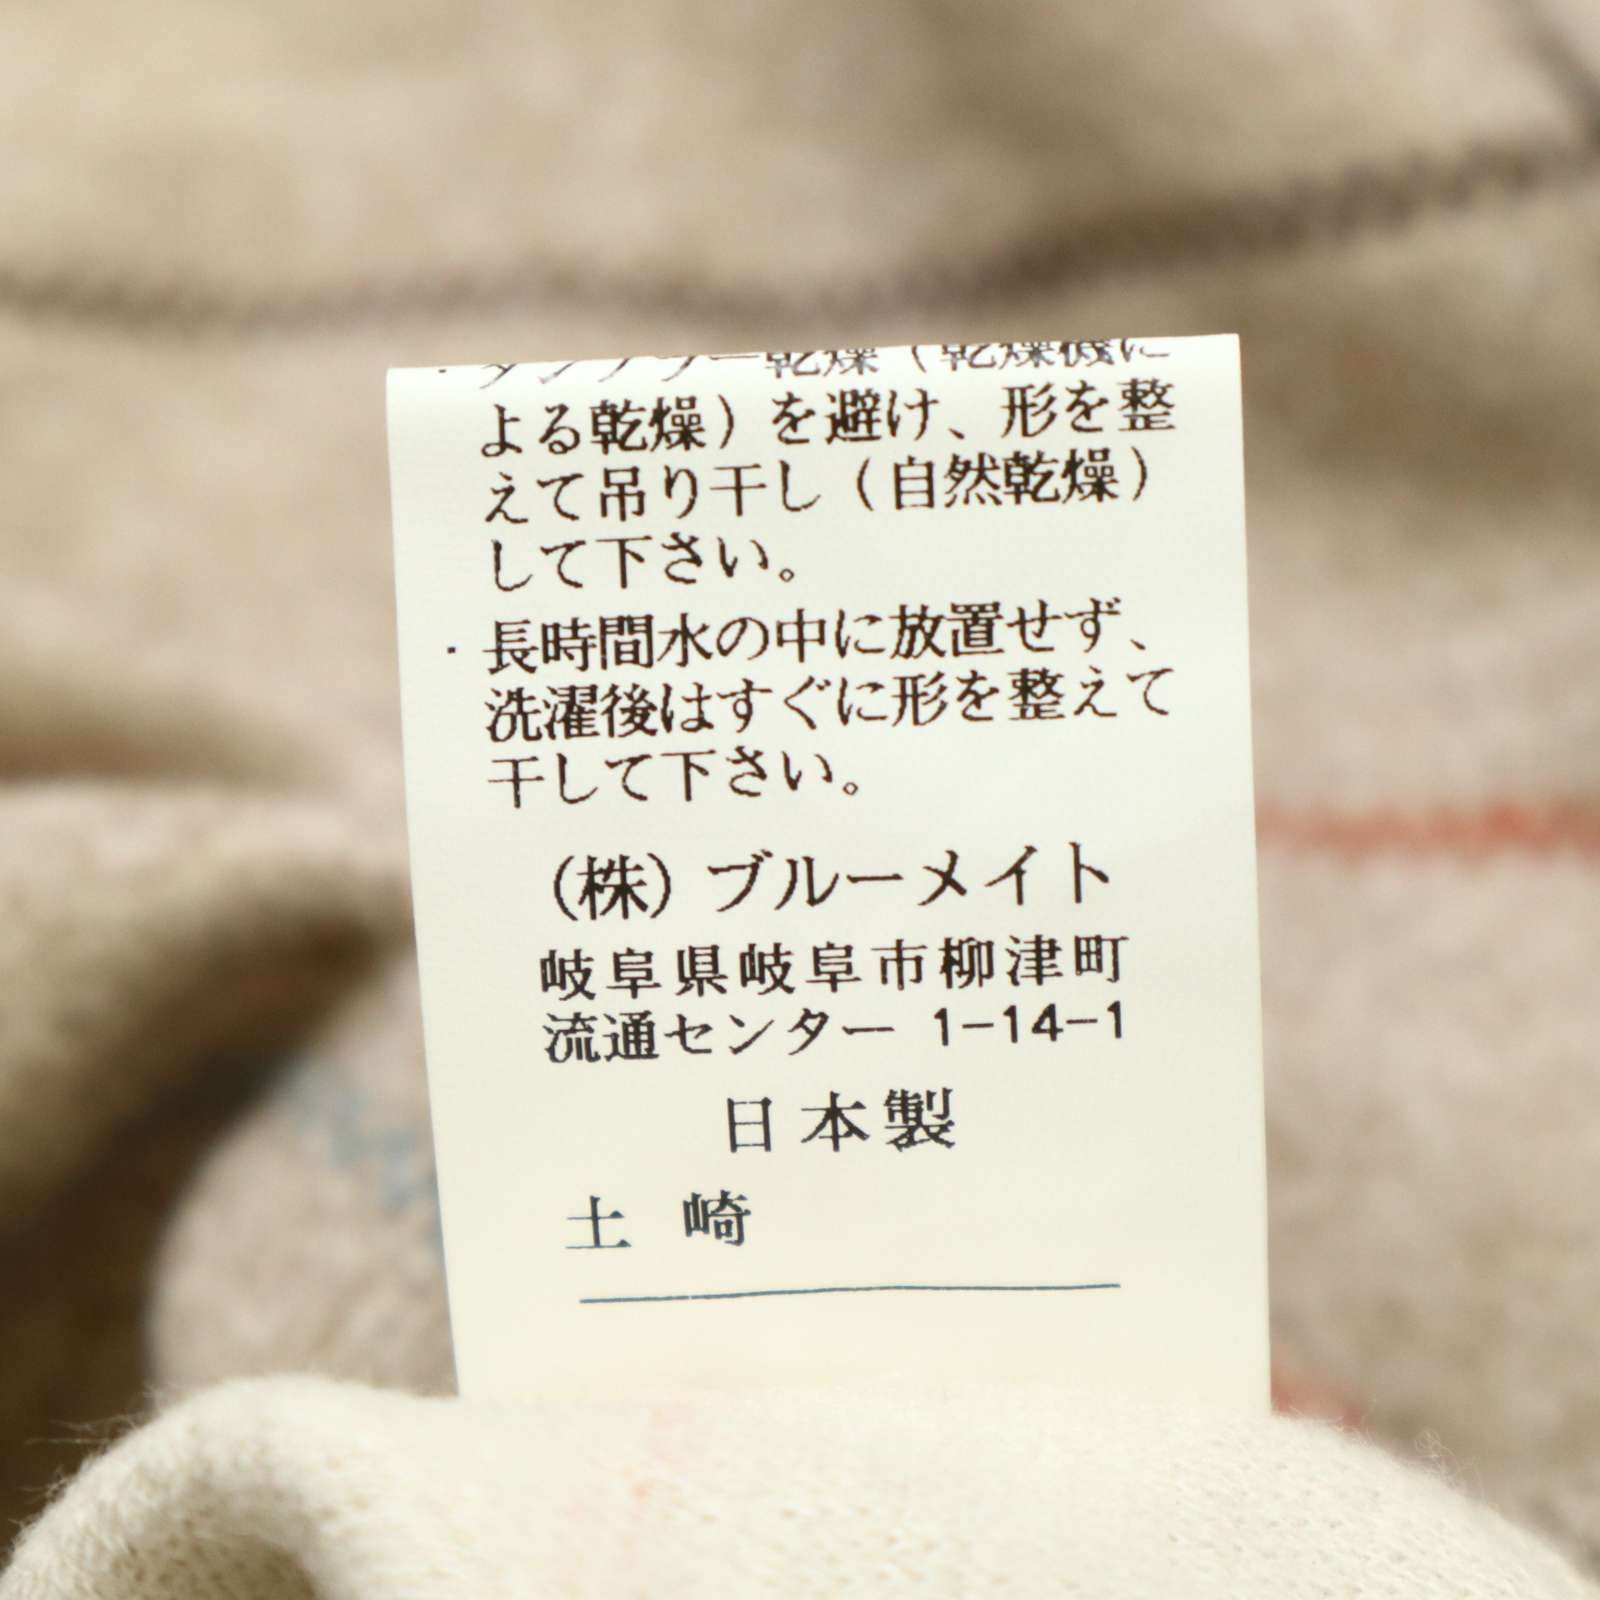 ・タンブラー乾燥（乾燥機に
よる乾燥）を避け、形を整
えて吊り干し（自然乾燥）
して下さい。
・長時間水の中に放置せず、
洗濯後はすぐに形を整えて
干して下さい。
（株）ブルーメイト
岐阜県岐阜市柳津町
流通センター 1-14-1
日本製
土 崎